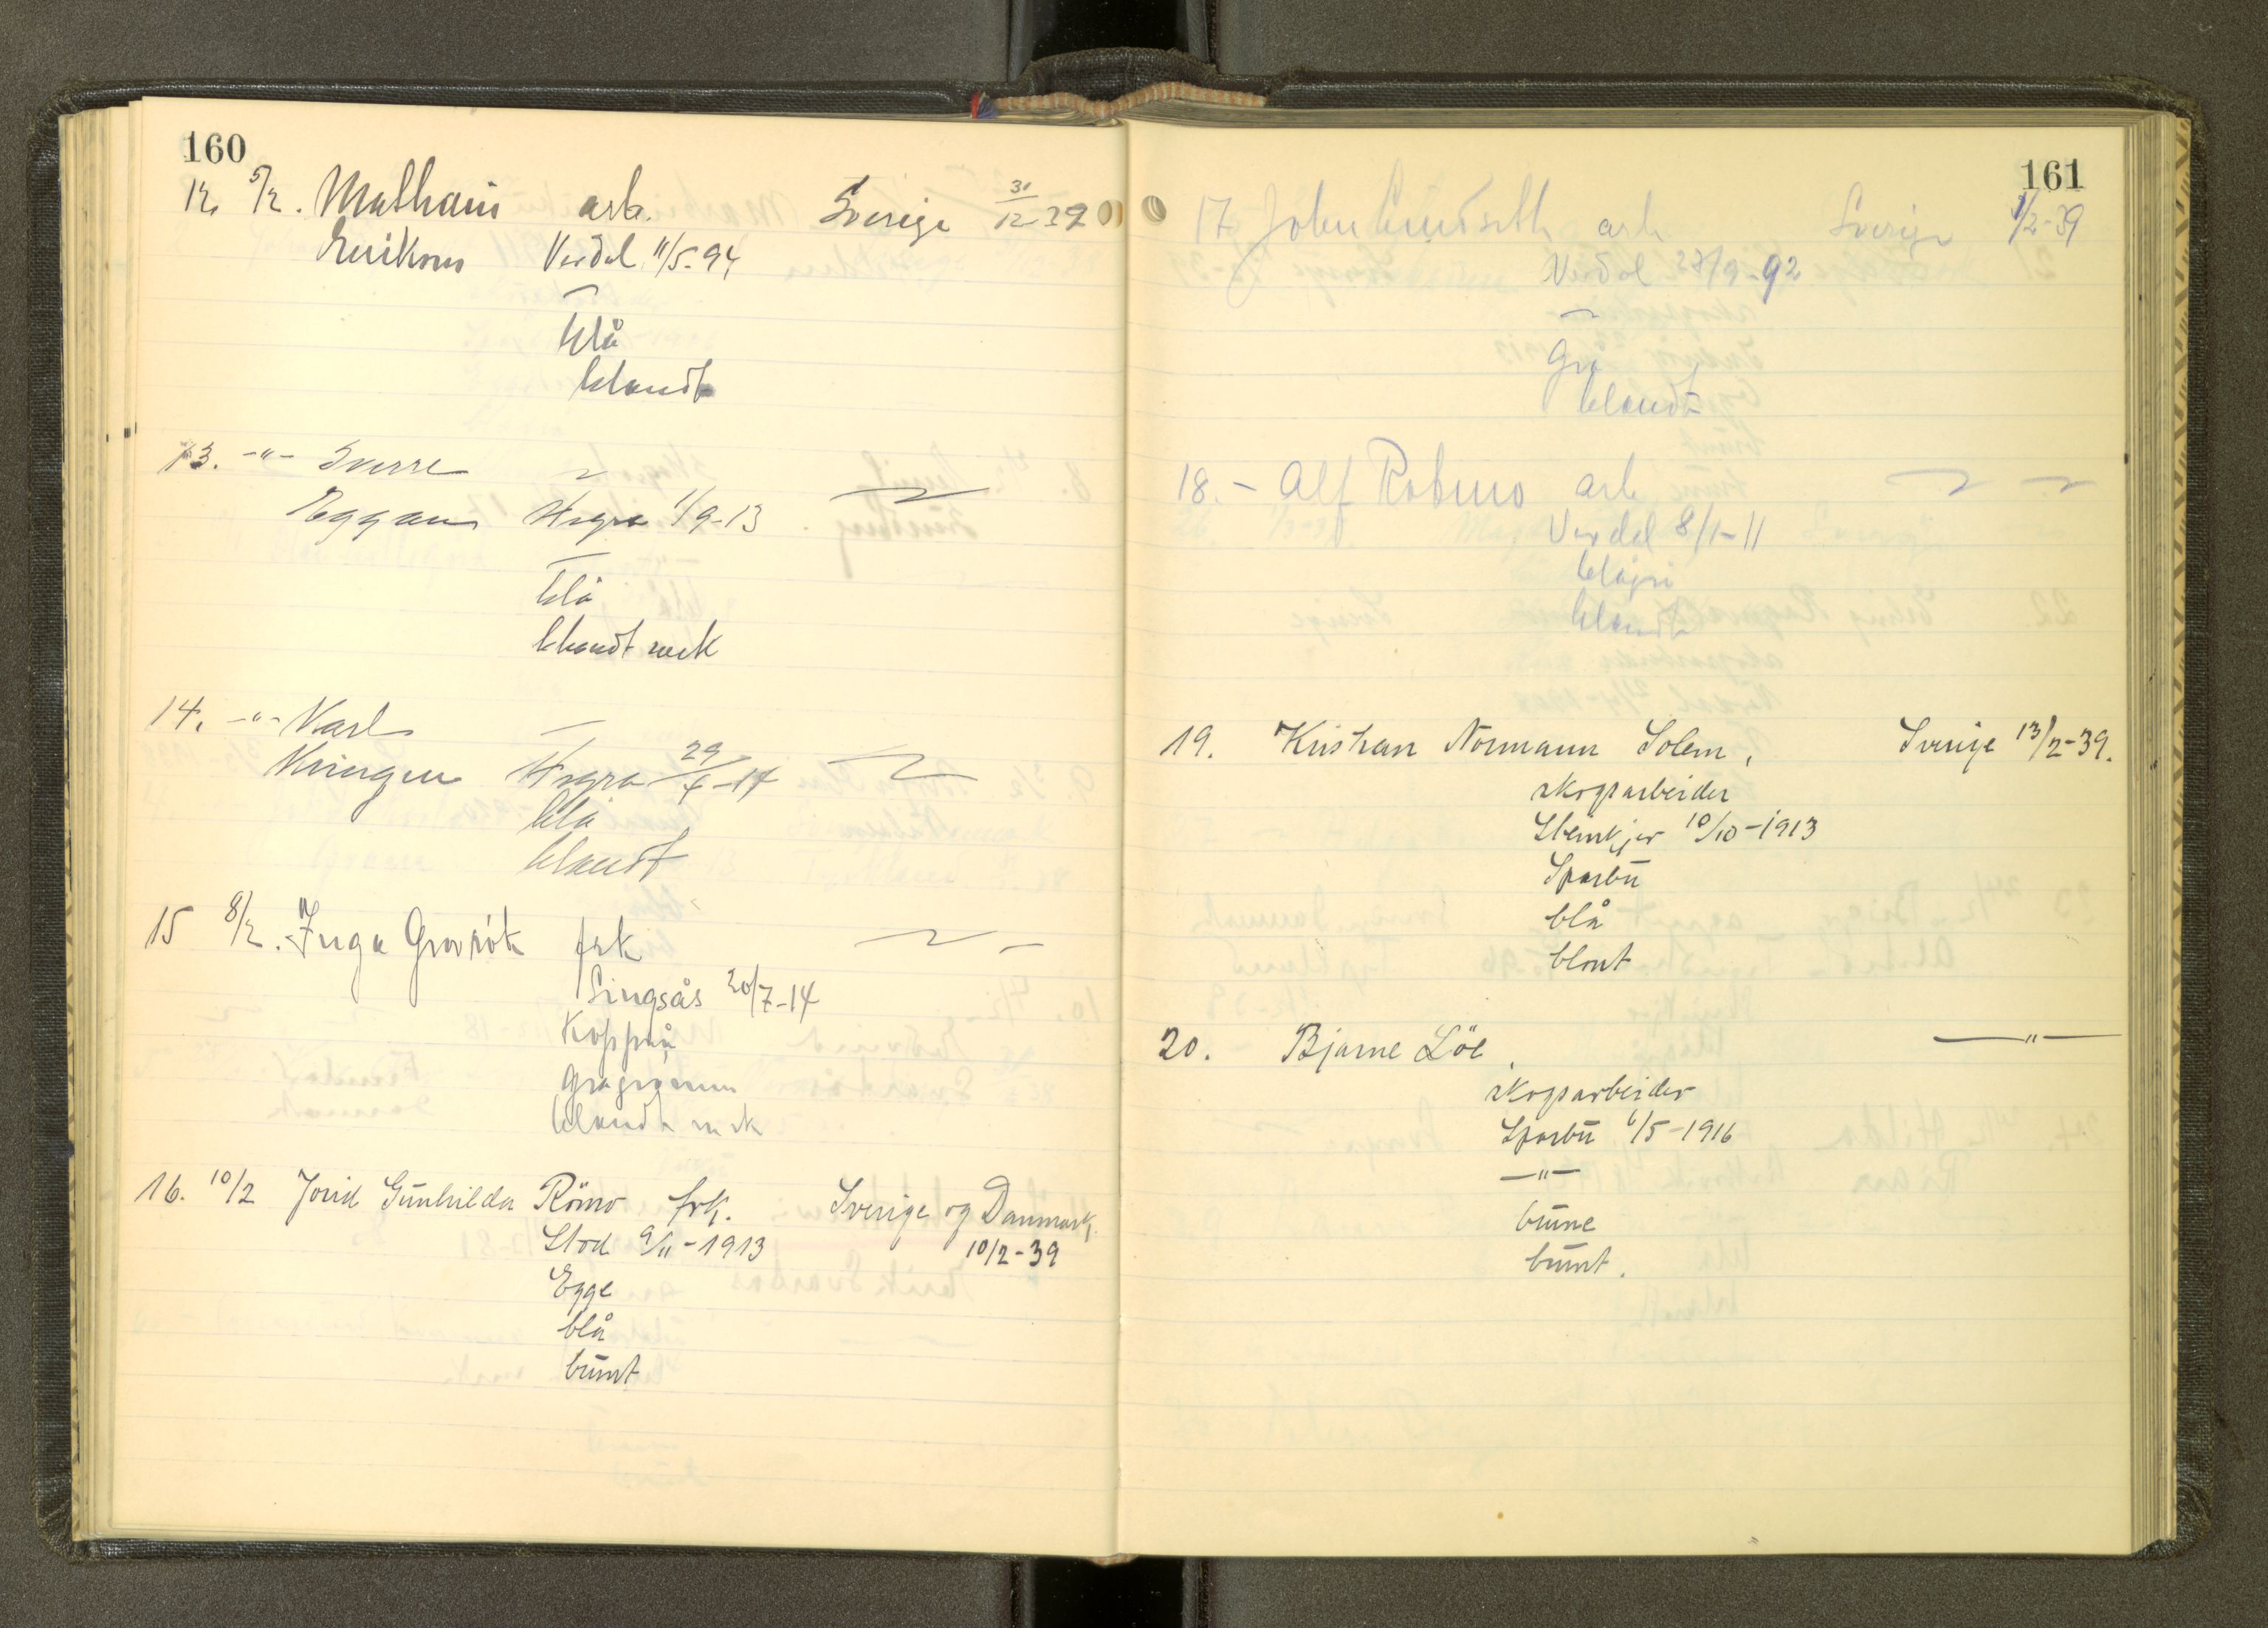 160
12. 5/2. Mathains arb. Sverige 31/12-39
Erikson Verdal 11/5-94
blå
blandt
13. -"- Sverre
Eggan Hegra 1/9-13
blå
blandt mrk
14. -"- Karl
Kringen Hegra 29/4-14
blå
blandt
15 8/2. Inga Grovrök frk
Singsås 20/7-14
Koppuå
grågrønn
blandt mrk
16. 10/2 Jorid Gunhilda Römo frk. Sverige og Danmark.
Stod 9/11-1913 10/2-39
Egge
blå
brunt
161
17. John arb Sverige 1/2-39
Verdal 27/9-92
grå
blandt
18. - Alf Robmo arb
Verdal 8/1-11
blågrå
blandt
19. Kristian Normann Solem, Sverige 13/2-39.
skogsarbeider
Steinkjer 10/10-1913
Sparbu
blå
blont
20. Bjarne Löe, -"-
skogsarbeider
Sparbu 6/5-1916
-"-
brune
brunt.